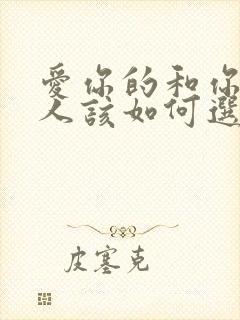 愛你的和你
人該如何選
皮塞克